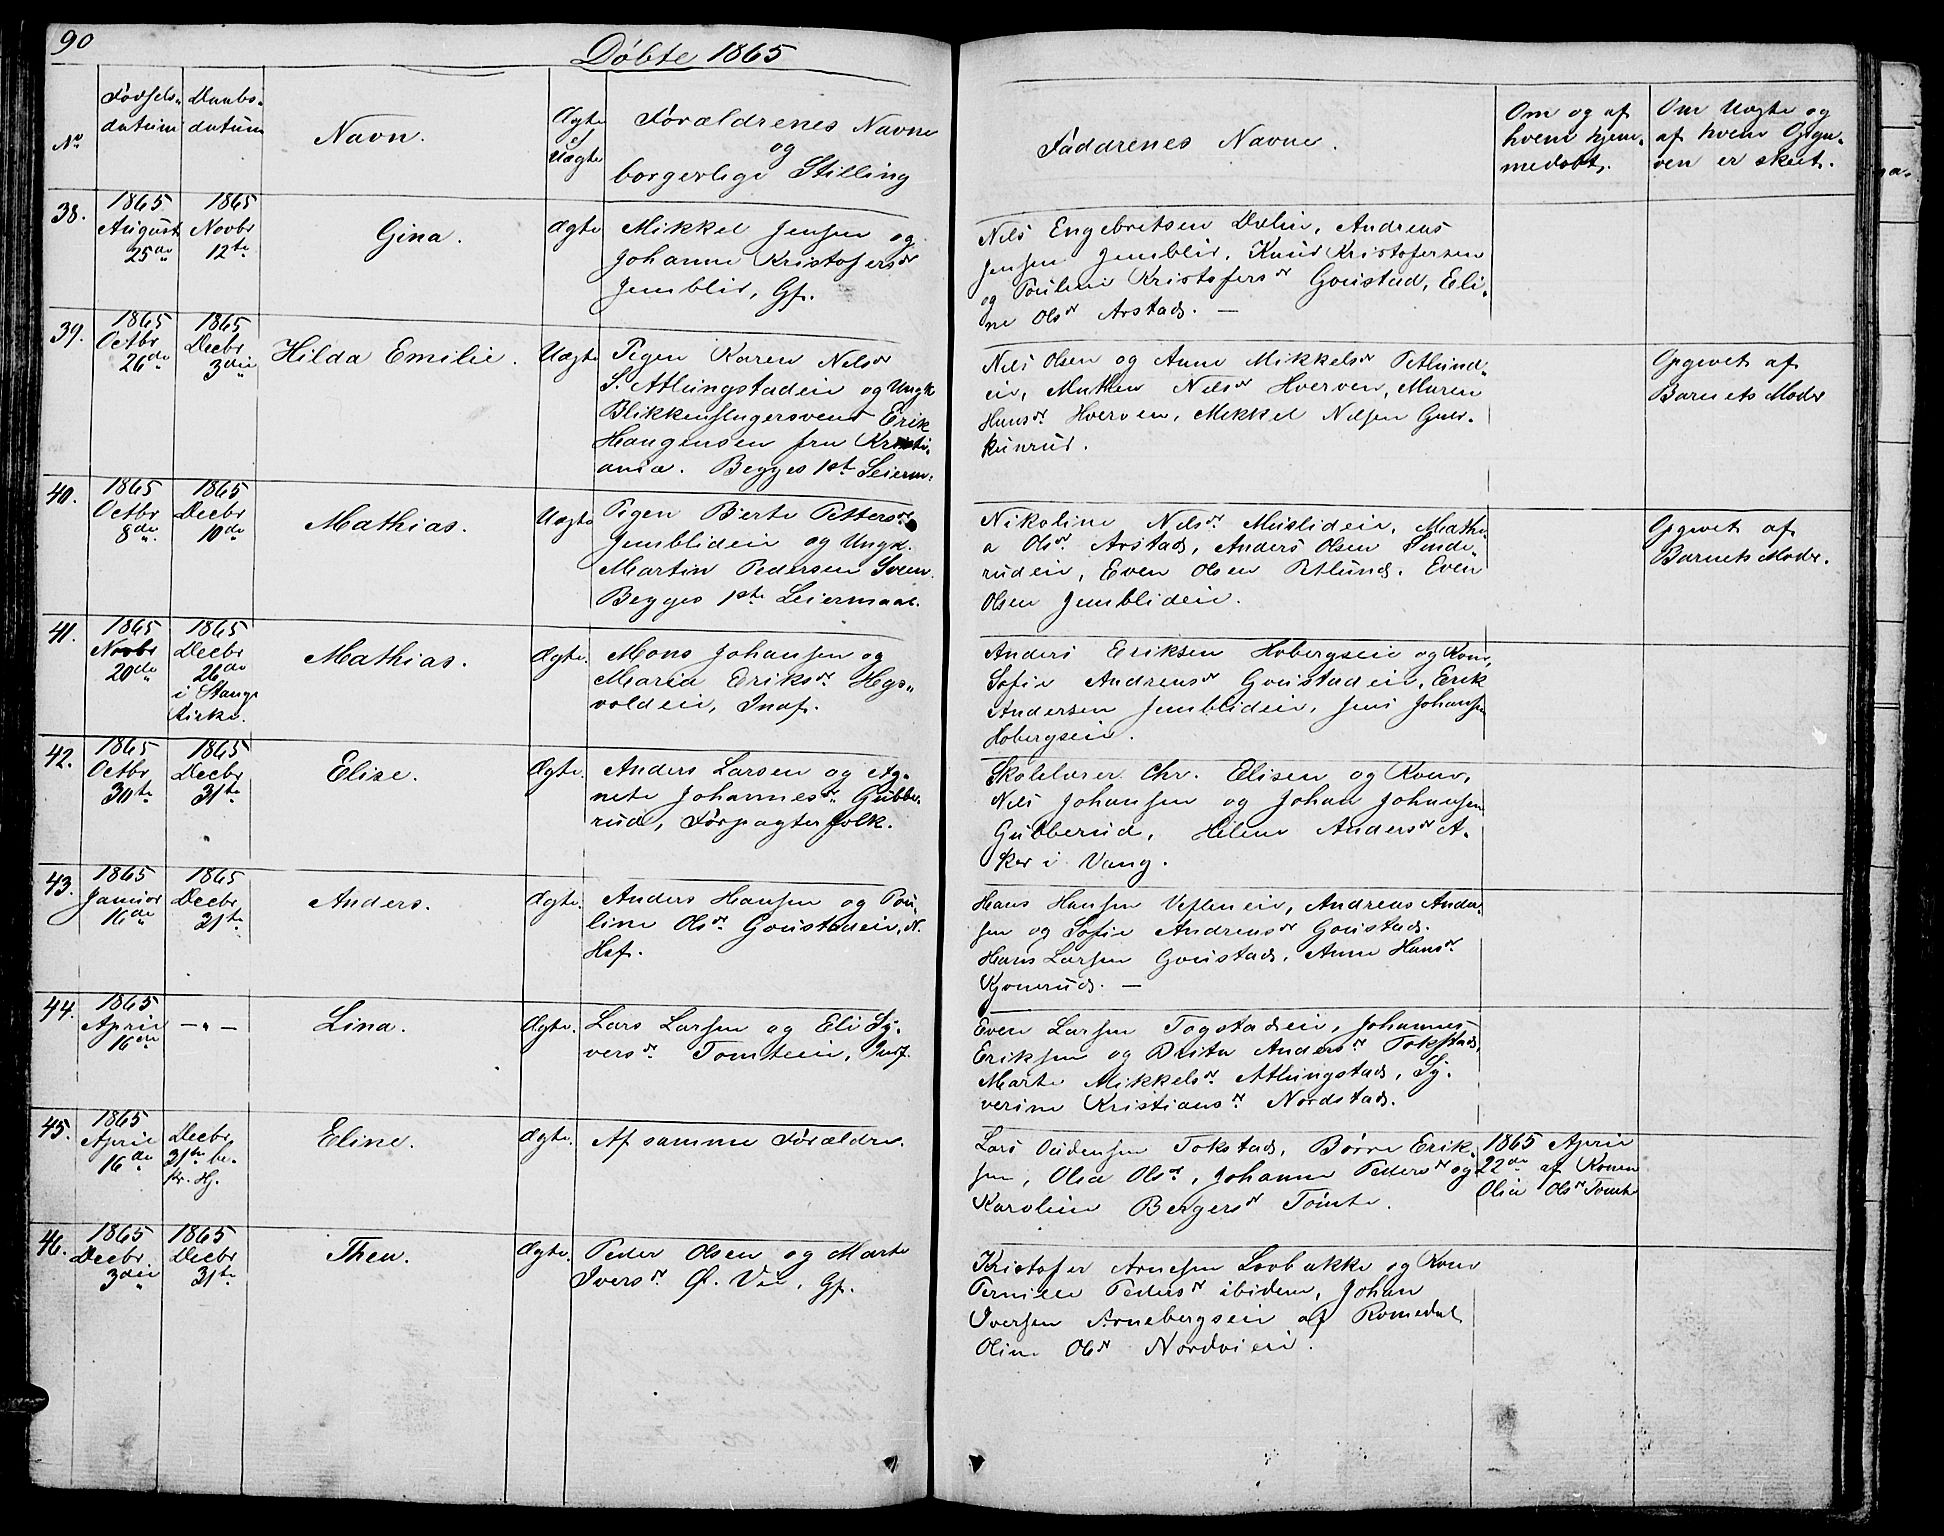 90
Döbte 1865
No
Födsels-
datum
Daabs-
datum
Navn.
Ægte
el
Uægte
Forældrenes Navne
og
borgerlige Stilling
Faddrenes Navne.
Om og af
hvem hjem-
medøbt.
Om Uægte og
af hvem Opgi-
ven er skeet.
38.
1865
August
25de
1865
Novbr
12te
Gina.
Ægte
Mikkel Jensen og
Johanne Kristofersdr
Jemblid, Gf.
Nils Engebretsen Dælin, Andreas
Jensen Jemblid, Knud Kristofersen
og Pouline Kristofersdr Goustad, Eli-
ne Olsdr Arstad. —
39.
1865
Octbr
26de
1865
Decbr
3die
Hilda Emilie.
Uægte
Pigen Karen Nilsdr
S. Atlungstadeie og Ungk
Blikkenslagersvend Erik
Haugensen fra Kristi-
ania. Begges 1st Leierm.
Nils Olsen og Anne Mikkelsdr Petlund-
eie, Mathea Nilsdr Hverven, Maren
Hansdr Hverven, Mikkel Nilsen Guls-
kinrud.
Opgivet af
Barnets Moder
40.
1865
Octbr
8de
1865
Decbr
10de
Mathias.
Uægte
Pigen Berte Pettersdr
Jemblideie og Ungk.
Martin Pedersen Sveen.
Begges 1ste Leiermaal.
Nikoline Nilsdr Muslideie, Mathe-
a Olsdr Arstad, Anders Olsen Sinde-
rudeie, Even Olsen Petlund, Even
Olsen Jemblideie.
Opgivet af
Barnets Moder.
41.
1865
Novbr
20de
1865
Decbr
26de
i Stange
Kirke.
Mathias.
Ægte.
Mons Johansen og
Maria Eriksdr Hegs-
voldeie, Indf.
Anders Eriksen Hobergseie og Kone,
Sofie Andreasdr Goustadeie, Erik
Andersen Jemblideie, Jens Johansen
Hobergseie.
42.
1865
Octbr
30te
1865
Decbr
31te
Elise.
Ægte.
Anders Larsen og Ag-
nete Johannesdr Gubbe-
rud, Forpagterfolk.
Skolelærer Chr. Elisen og Kone,
Nils Johansen og Johan Johansen
Gubberud, Helene Andersdr A-
ker i Vang.
43.
1865
Januar
16de
1865
Decbr
31te
Anders.
Ægte.
Anders Hansen og Pou-
line Olsdr Goustadeie, N.
Hsf.
Hans Hansen Veflineie, Andreas Ander-
sen og Sofie Andreasdr Goustad.
Hans Larsen Goustad, Anne Hansdr
Kjonerud. —
44.
1865
April
16de
— " —
Lina.
Ægte.
Lars Larsen og Eli Sy-
versdr Tomteeie, Indf.
Even Larsen Togstadeie, Johannes
Eriksen og Brita Andersdr Tokstad,
Marte Mikkelsdr Atlungstad, Sy-
verine Kristiansdr Nordstad.
45.
1865
April
16de
Decbr
31te be-
kr. Hj.
Eline.
Ægte.
Af samme Forældre.
Lars Oudensen Tokstad, Börre Erik-
sen, Olea Olsdr, Johanne Pedersdr og
Karoline Bergersdr Tomte.
1865 April
22de af Konen
Olia Olsdr Tomte
46.
1865
Decbr
3die
1865
Decbr
31te
Thea.
Ægte.
Peder Olsen og Marte
Iversdr Ø. Vie, Gf.
Kristofer Arnesen Lovbakke og Kone
Pernille Pedersdr ibidem, Johan
Iversen Arnebergseie af Romedal
Oline Olsdr Nordvieie.